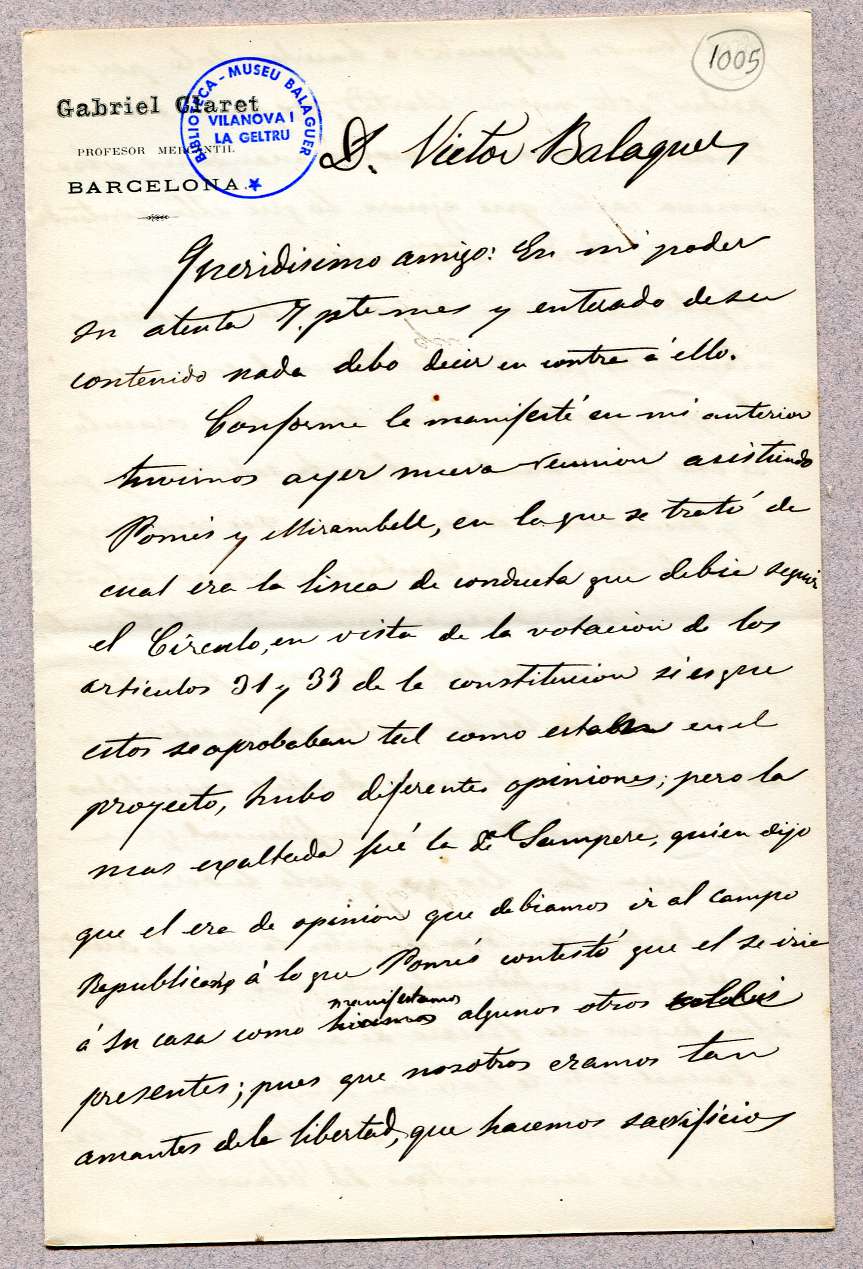 1005
Gabriel Claret
PROFESOR MERCANTIL
BARCELONA.
BIBLIOTECA - MUSEU BALAGUER
VILANOVA I
LA GELTRU
D. Victor Balaguer
Queridisimo amigo: En mi poder
su atenta 7. pte mes y enterado de su
contenido nada debo decir en contra á ello.
Conforme le manifesté en mi anterior
tuvimos ayer nueva reunion asistiendo
Pomés y Mirambell, en la que se trató de
cual era la linea de conducta que debia seguir
el Círculo, en vista de la votacion de los
articulos 31 y 33 de la constitucion si es que
estos se aprobaban tal como estaban en el
proyecto, hubo diferentes opiniones; pero la
mas exaltada fué la del Sampere, quien dijo
que el era de opinion que debiamos ir al campo
Republicano á lo que Pomés contestó que el se iria
á su casa como manifestamos algunos otros
presentes; pues que nosotros eramos tan
amantes de la libertad, que hacemos sacrificios